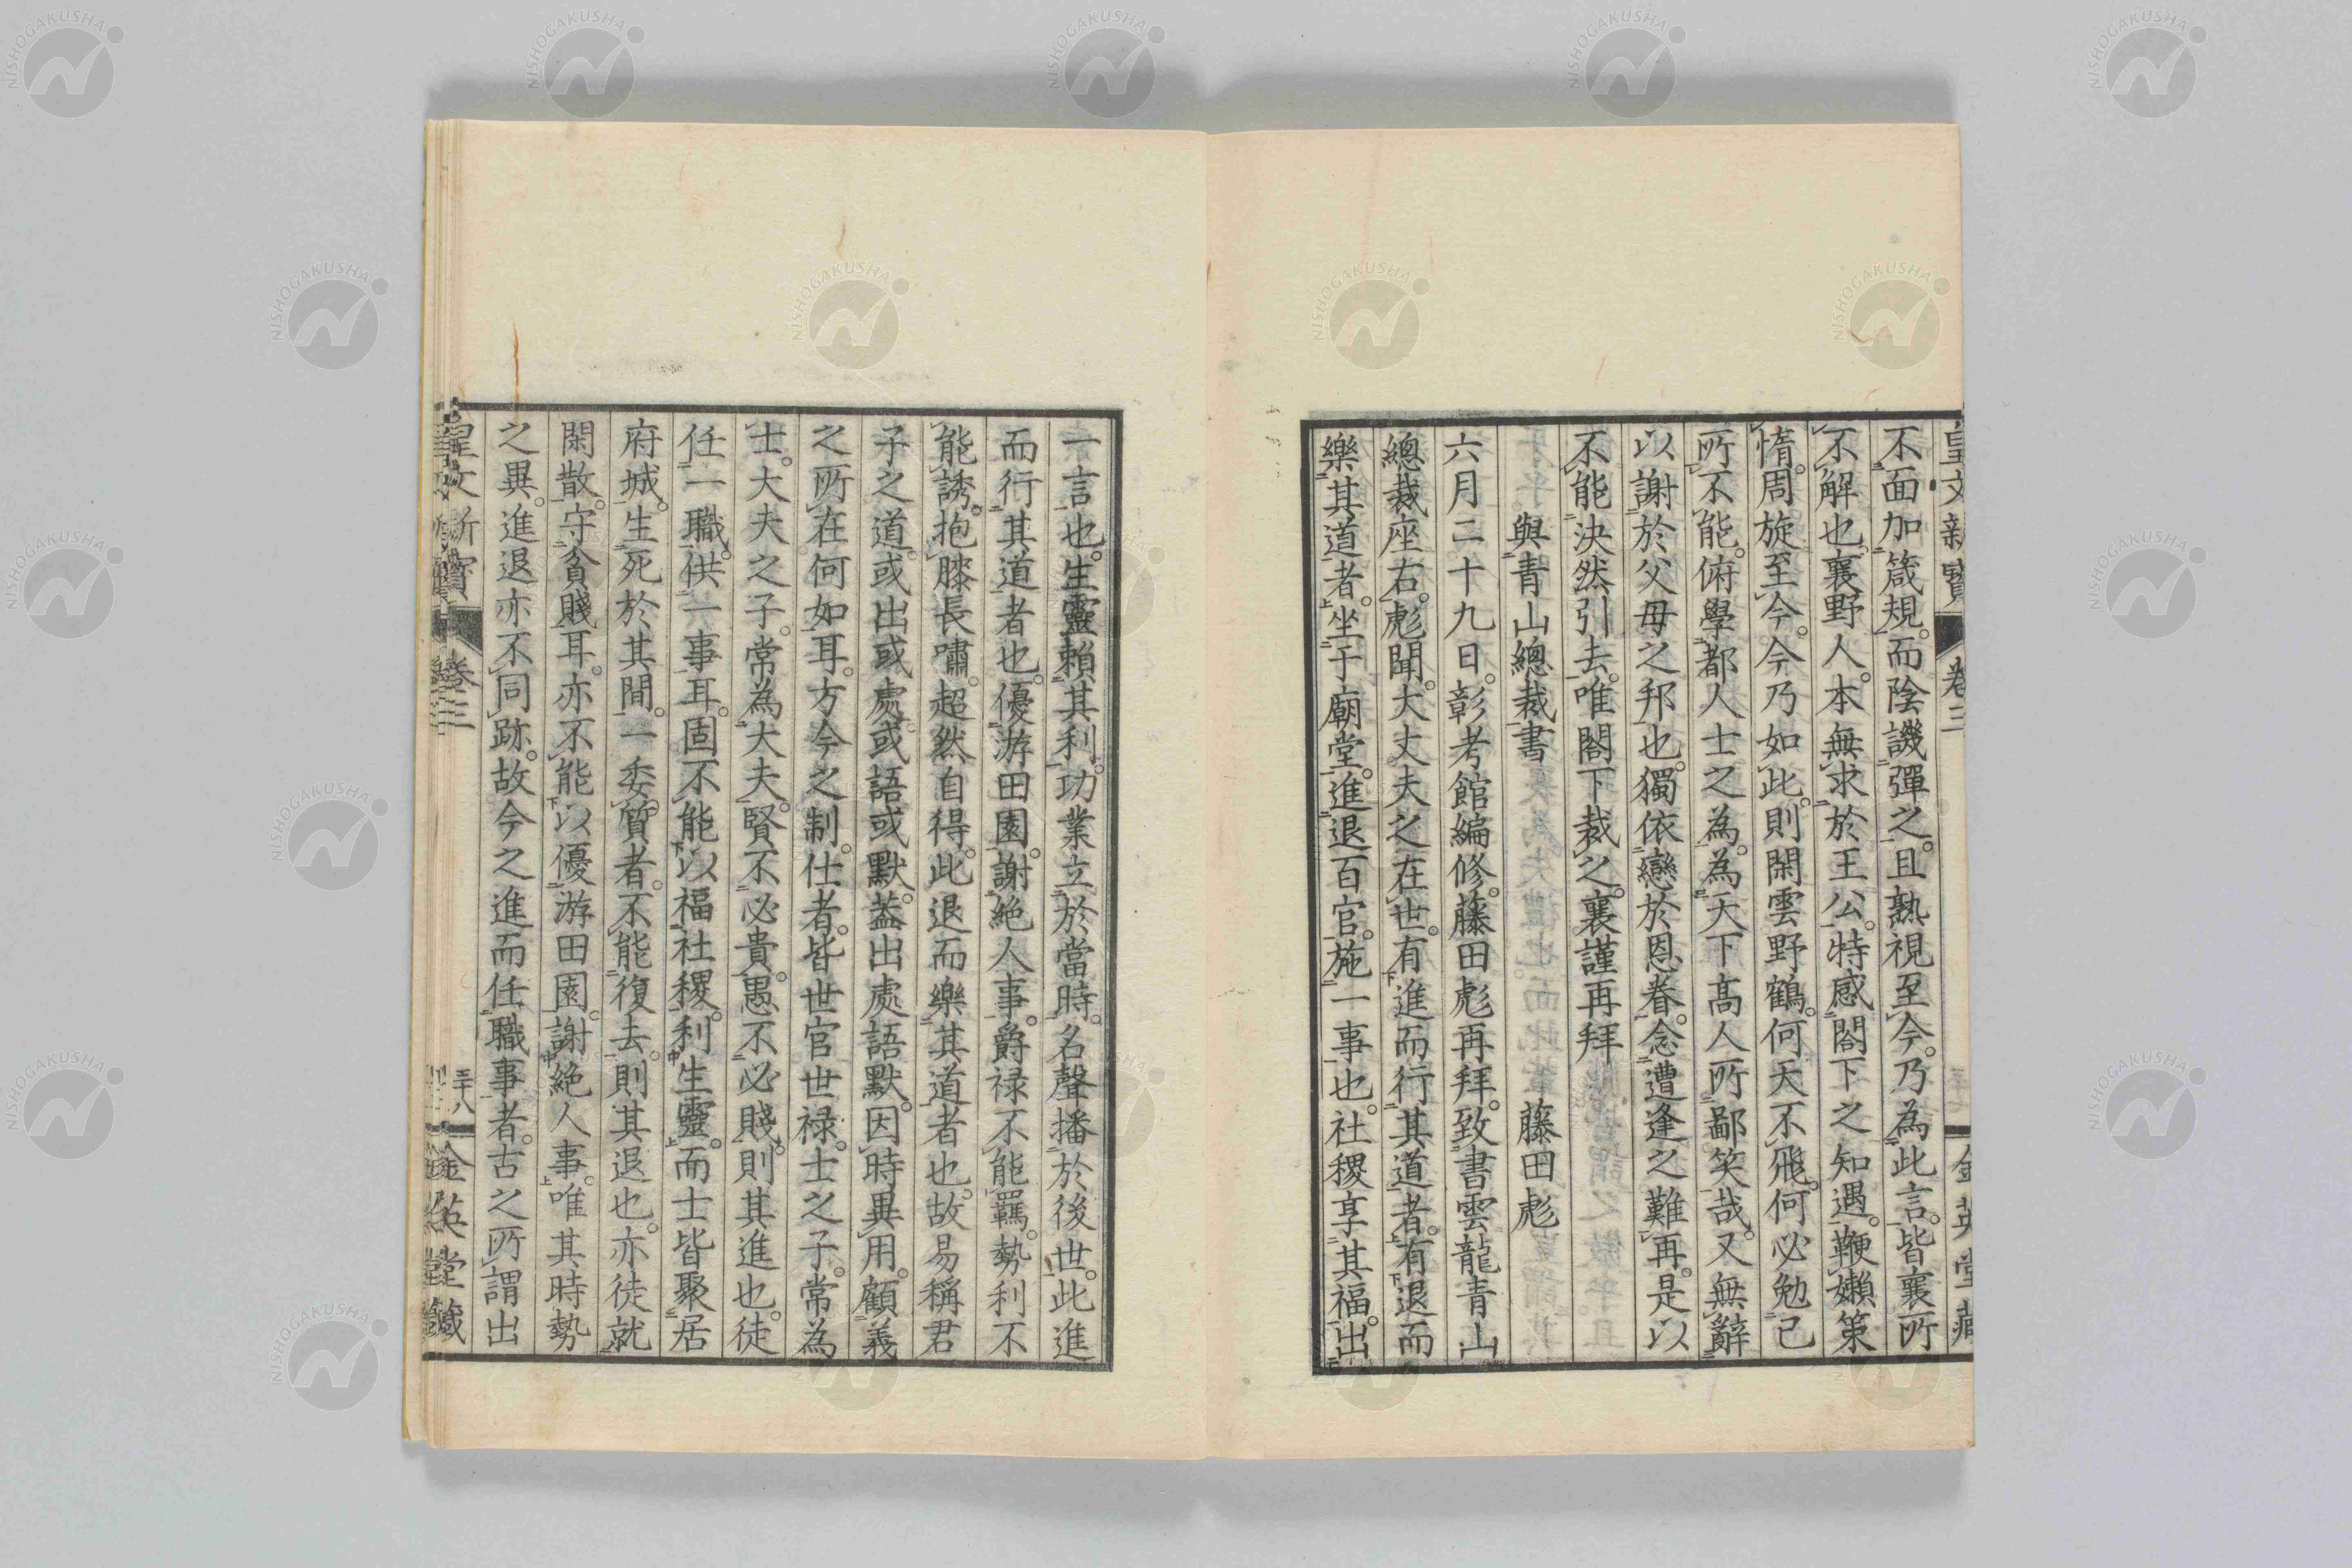 皇文新寶 卷三 金英堂藏
不面加箴規。而陰譏彈之。且熟視至今。乃為此言。皆襄所
不解也。襄野人。本無求於王公。特感閣下之知遇。鞭嬾策
惰。周旋至今。今乃如此。則閑雲野鶴。何天不飛。何必勉己
所不能。俯學都人士之為。為天下高人所鄙笑哉。又無辭
以謝於父母之邦也。獨依戀於恩眷。念遭逢之難再。是以
不能決然引去。唯閣下裁之。襄謹再拜
與青山總裁書 藤田彪
六月二十九日。彰考館編修。藤田彪再拜。致書雲龍青山
總裁座右。彪聞。大丈夫之在世。有進而行其道者。有退而
樂其道者。坐于廟堂。進退百官。施一事也。社稷享其福。出
一言也。生靈賴其利。功業立於當時。名聲播於後世。此進
而行其道者也。優游田園。謝絶人事。爵禄不能羈。勢利不
能誘。抱膝長嘯。超然自得。此退而樂其道者也。故易稱君
子之道。或出或處。或語或默。蓋出處語默。因時異用。顧義
之所在何如耳。方今之制。仕者。皆世官世禄。士之子。常為
士。大夫之子。常為大夫。賢不必貴。愚不必賤。則其進也。徒
任一職。供一事耳。固不能以福社稷。利生靈。而士皆聚居
府城。生死於其間。一委質者。不能復去。則其退也。亦徒就
閑散。守貧賤耳。亦不能以優游田園。謝絶人事。唯其時勢
之異。進退亦不同跡。故今之進而任職事者。古之所謂出
皇文新寶 卷三 三十八 金英堂藏